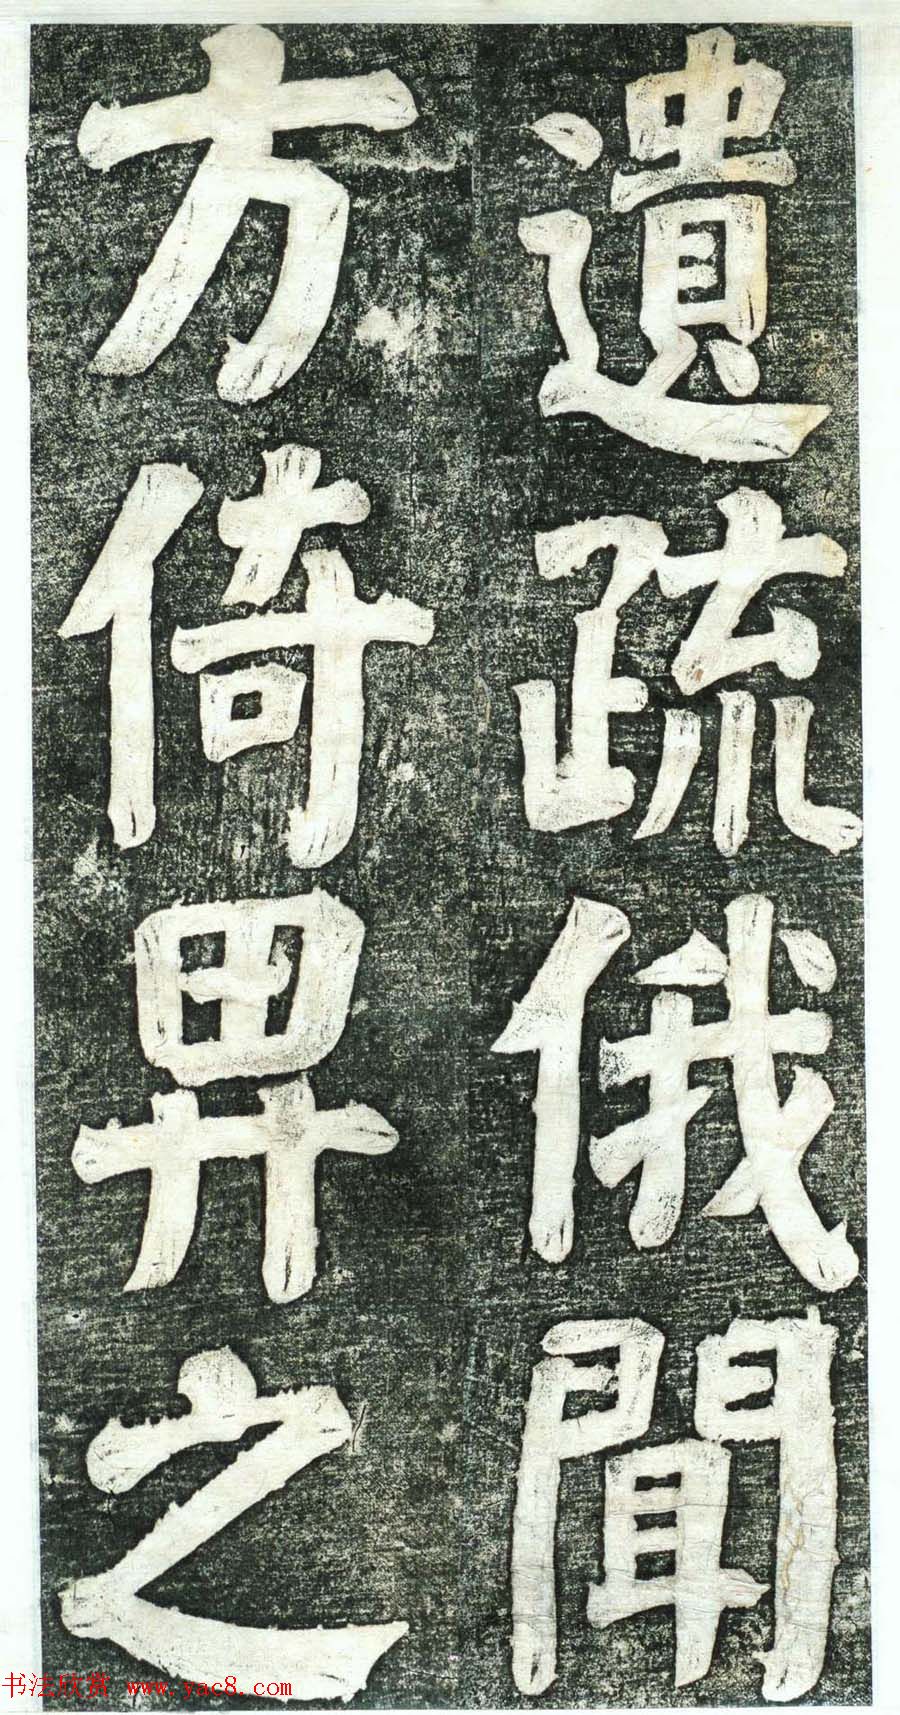 遺疏俄聞
方倚畀之
书法欣赏 www.yac8.com